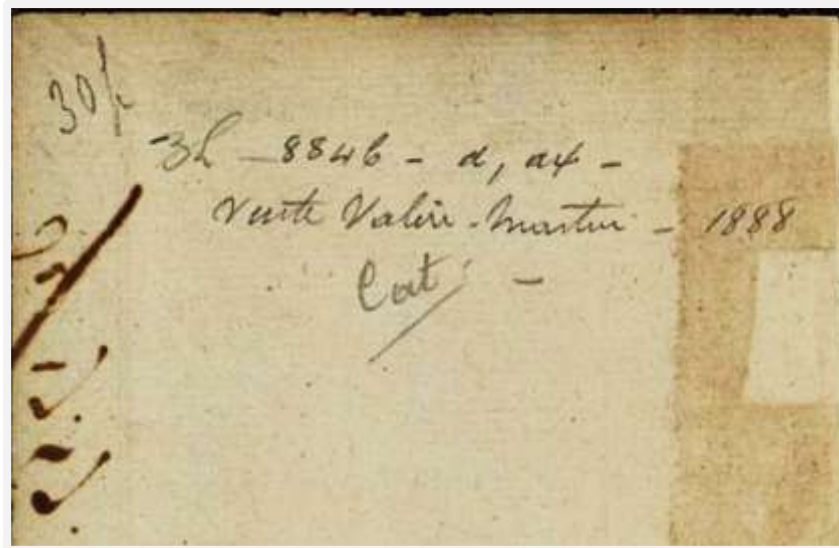 30 f
3L - 8846 - d, ax -
Vente Valère-Martin - 1888
Cat. -